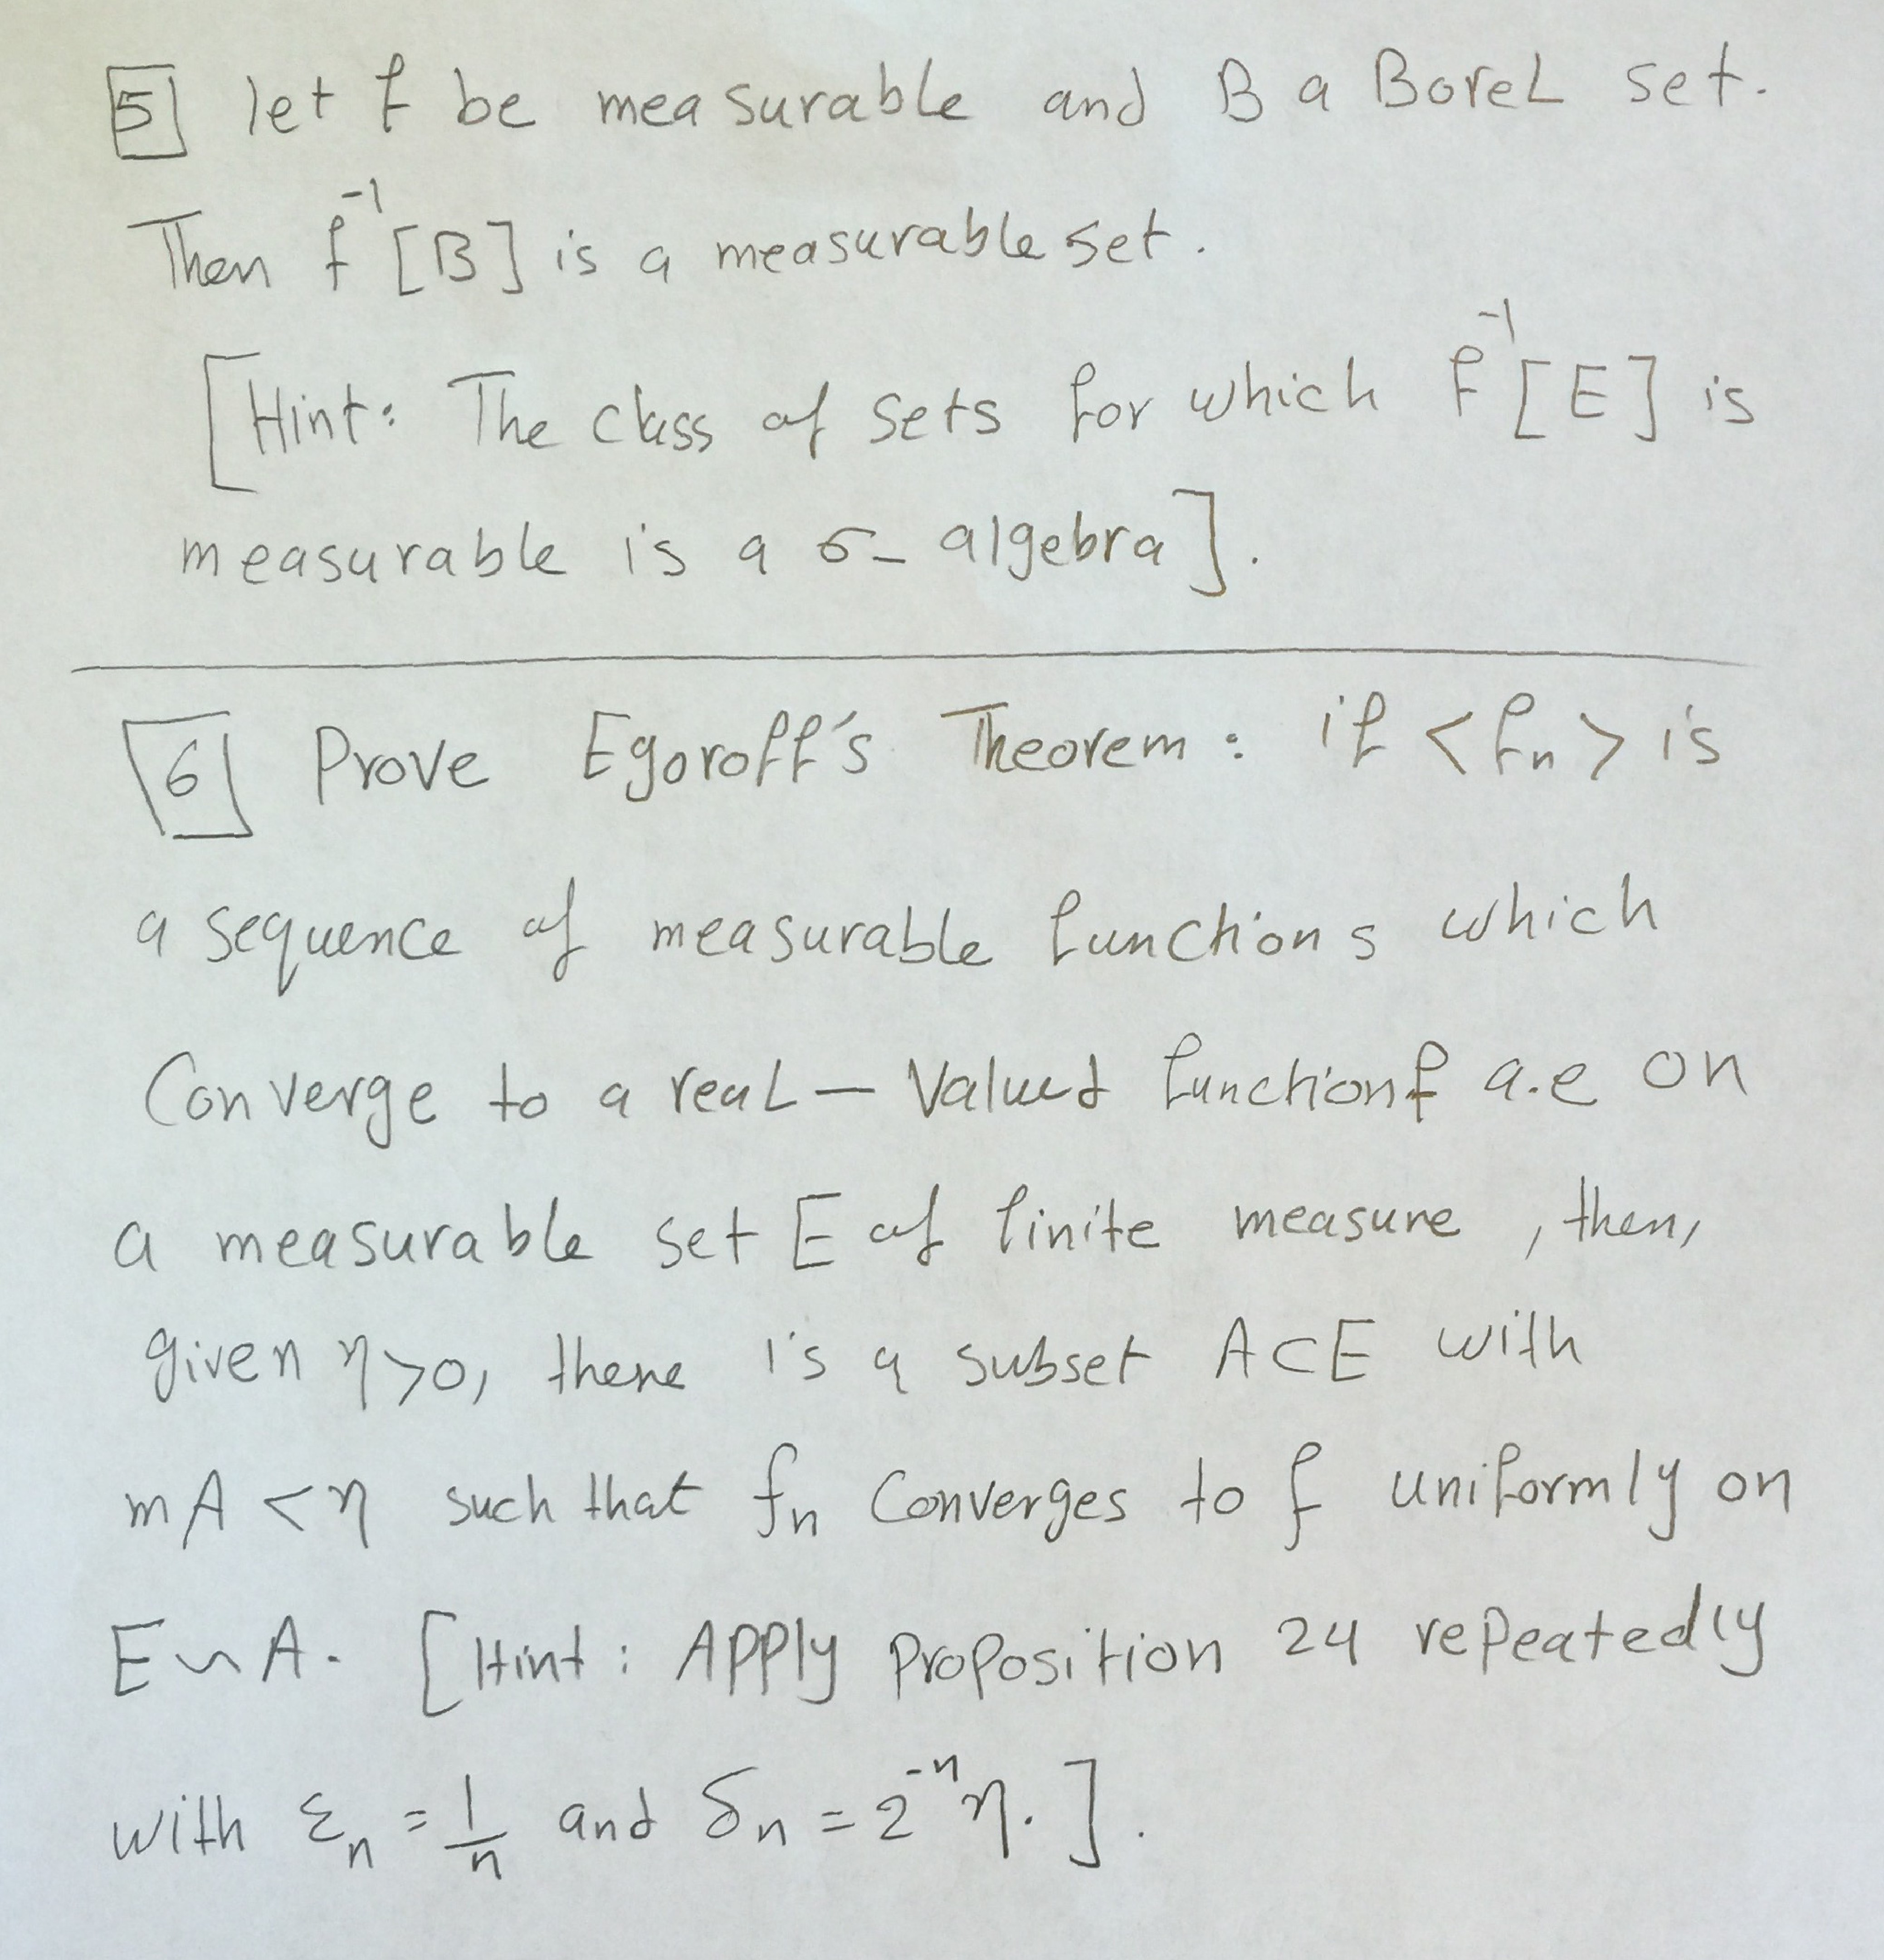 5 let f be measurable and B a Borel set.
Then f⁻¹[B] is a measurable set.
[Hint: The class of sets for which f⁻¹[E] is
measurable is a σ- algebra].
6 Prove Egoroff's Theorem: if <fn> is
a sequence of measurable functions which
Converge to a real-Valued function f a.e on
a measurable set E of finite measure, then,
given η>0, there is a subset A⊂E with
mA<η such that fn Converges to f uniformly on
E~A. [Hint: Apply Proposition 24 repeatedly
with εn = 1/n and δn = 2⁻ⁿη.].